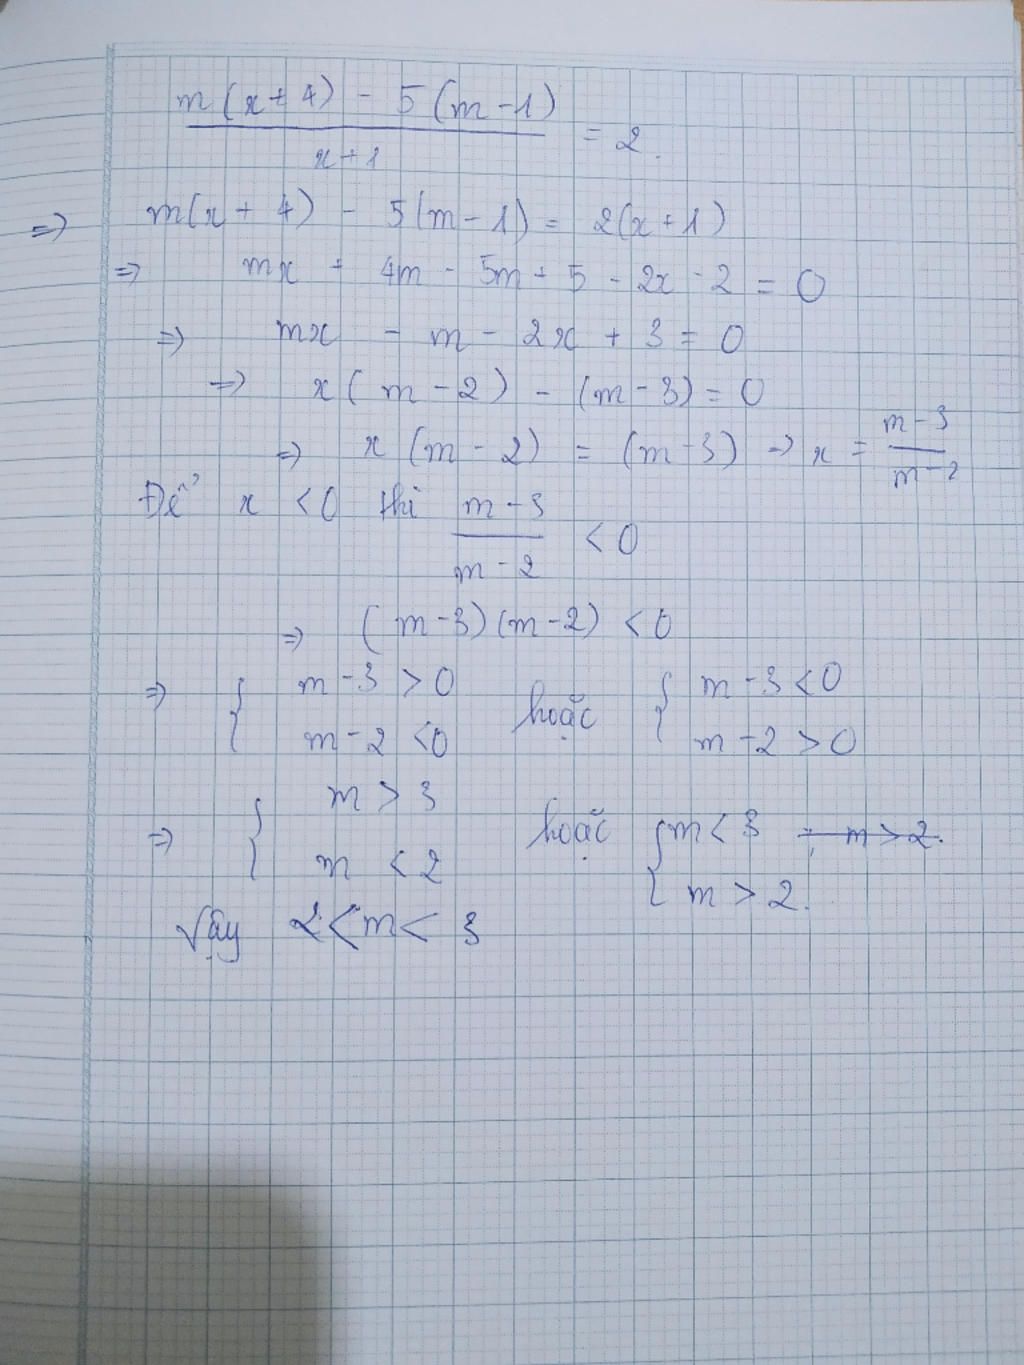 m(x+4) - 5(m-1)
x+1
= 2.
=> m(x+4) - 5(m-1) = 2(x+1)
=> mx + 4m - 5m + 5 - 2x - 2 = 0
=> mx - m - 2x + 3 = 0
=> x(m-2) - (m-3) = 0
=> x(m-2) = (m-3) => x = m-3
m-2
Để x < 0 thì m-3
m-2
< 0
=> (m-3)(m-2) < 0
=> { m-3 > 0 hoặc { m-3 < 0
m-2 < 0 m-2 > 0
=> { m > 3 hoặc { m < 3 ; m > 2.
m < 2 m > 2.
Vậy 2 < m < 3